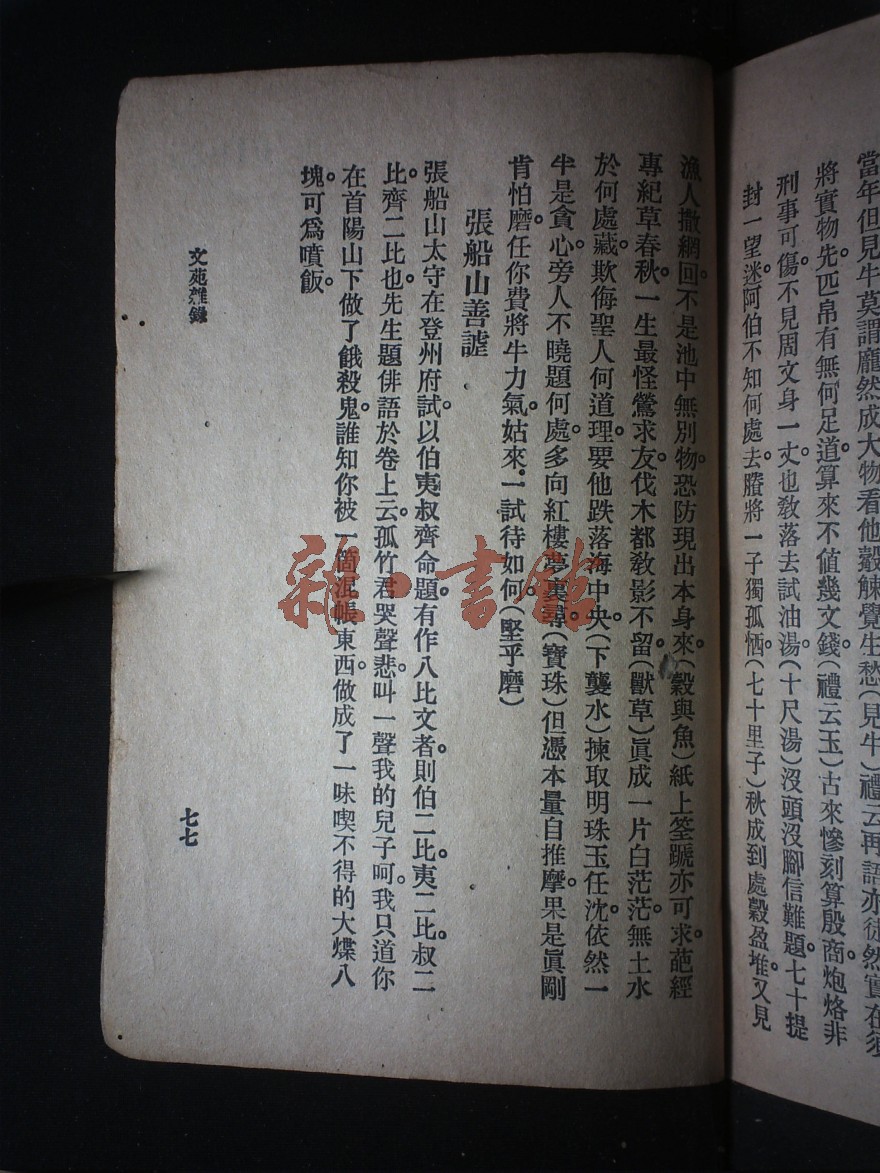 當年但見牛莫謂龐然成大物看他觳觫覺生愁(見牛)禮云再語亦徒然實在須
將實物先。匹帛有無何足道。算來不值幾文錢。(禮云玉)古來慘刻算殷商。炮烙非
刑事可傷。不見周文身一丈。也敎落去試油湯。(十尺湯)沒頭沒腳信難題。七十提
封一望迷。阿伯不知何處去。賸將一子獨孤恓。(七十里子)秋成到處穀盈堆。又見
漁人撒網回。不是池中無別物。恐防現出本身來。(穀與魚)紙上筌蹏亦可求。葩經
專紀草春秋。一生最怪鶯求友。伐木都敎影不留。(獸草)眞成一片白茫茫。無土水
於何處藏。欺侮聖人何道理。要他跌落海中央。(下襲水)揀取明珠玉任沈。依然一
半是貪心。旁人不曉題何處。多向紅樓夢裏尋。(寶珠)但憑本量自推摩。果是眞剛
肯怕磨。任你費將牛力氣。姑來一試待如何。(堅乎磨)
張船山善謔
張船山太守在登州府試。以伯夷叔齊命題。有作八比文者。則伯二比。夷二比。叔二
比。齊二比也。先生題俳語於卷上云。孤竹君哭聲悲。叫一聲我的兒子呵。我只道你
在首陽山下做了餓殺鬼。誰知你被一箇混帳東西。做成了一味喫不得的大煠八
塊。可爲噴飯。
文苑雜錄
七七
雜·書館